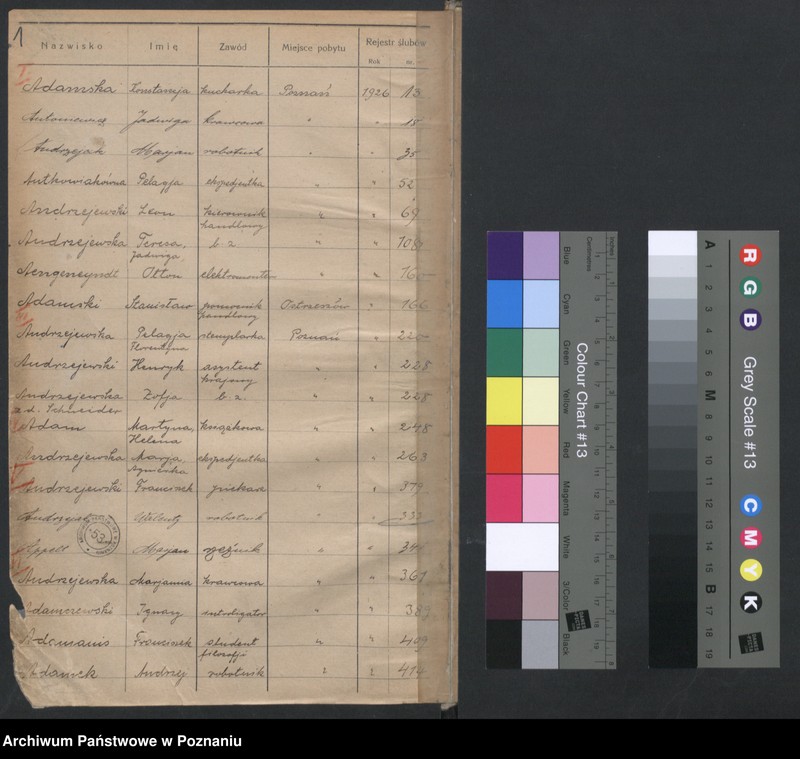 1
Nazwisko Imię Zawód Miejsce pobytu Rejestr ślubów
Rok nr.
Adamska Konstancja kucharka Poznań 1926 13
Antoniewicz Jadwiga krawcowa " " 15
Andrzejak Marjan robotnik " " 35
Antkowiakówna Pelagja ekspedjentka " " 52
Andrzejewski Leon kierownik " " 69
handlowy
Andrzejewska Teresa, b. z. " " 108
Jadwiga
Otton elektromonter " " 160
Adamski Stanisław pomocnik Ostrzeszów " 166
handlowy
Andrzejewska Pelagja stemplarka Poznań " 220
Florentyna
Andrzejewski Henryk asystent " " 225
krajowy
Andrzejewska Zofja b. z. " " 228
z d. Schneider
Adam Martyna, książkowa " " 248
Helena
Andrzejewska Marja, ekspedjentka " " 263
Agnieszka
Andrzejewski Franciszek piekarz " " 379
robotnik " 333
Appelt Marjan rzeźnik " " 34
Andrzejewska Marjanna krawcowa " " 361
Adamczewski Ignacy introligator " " 389
Adamanis Franciszek student " " 409
filozofji
Adamek Andrzej robotnik " " 414
53
Blue
Cyan
Green
Yellow
Red
Magenta
White
3/Color
Black
Centimetres
Inches
Colour Chart #13
A
1
2
3
4
5
6
M
8
9
10
11
12
13
14
15
B
17
18
19
R
G
B
Grey Scale #13
C
M
Y
K
Archiwum Państwowe w Poznaniu